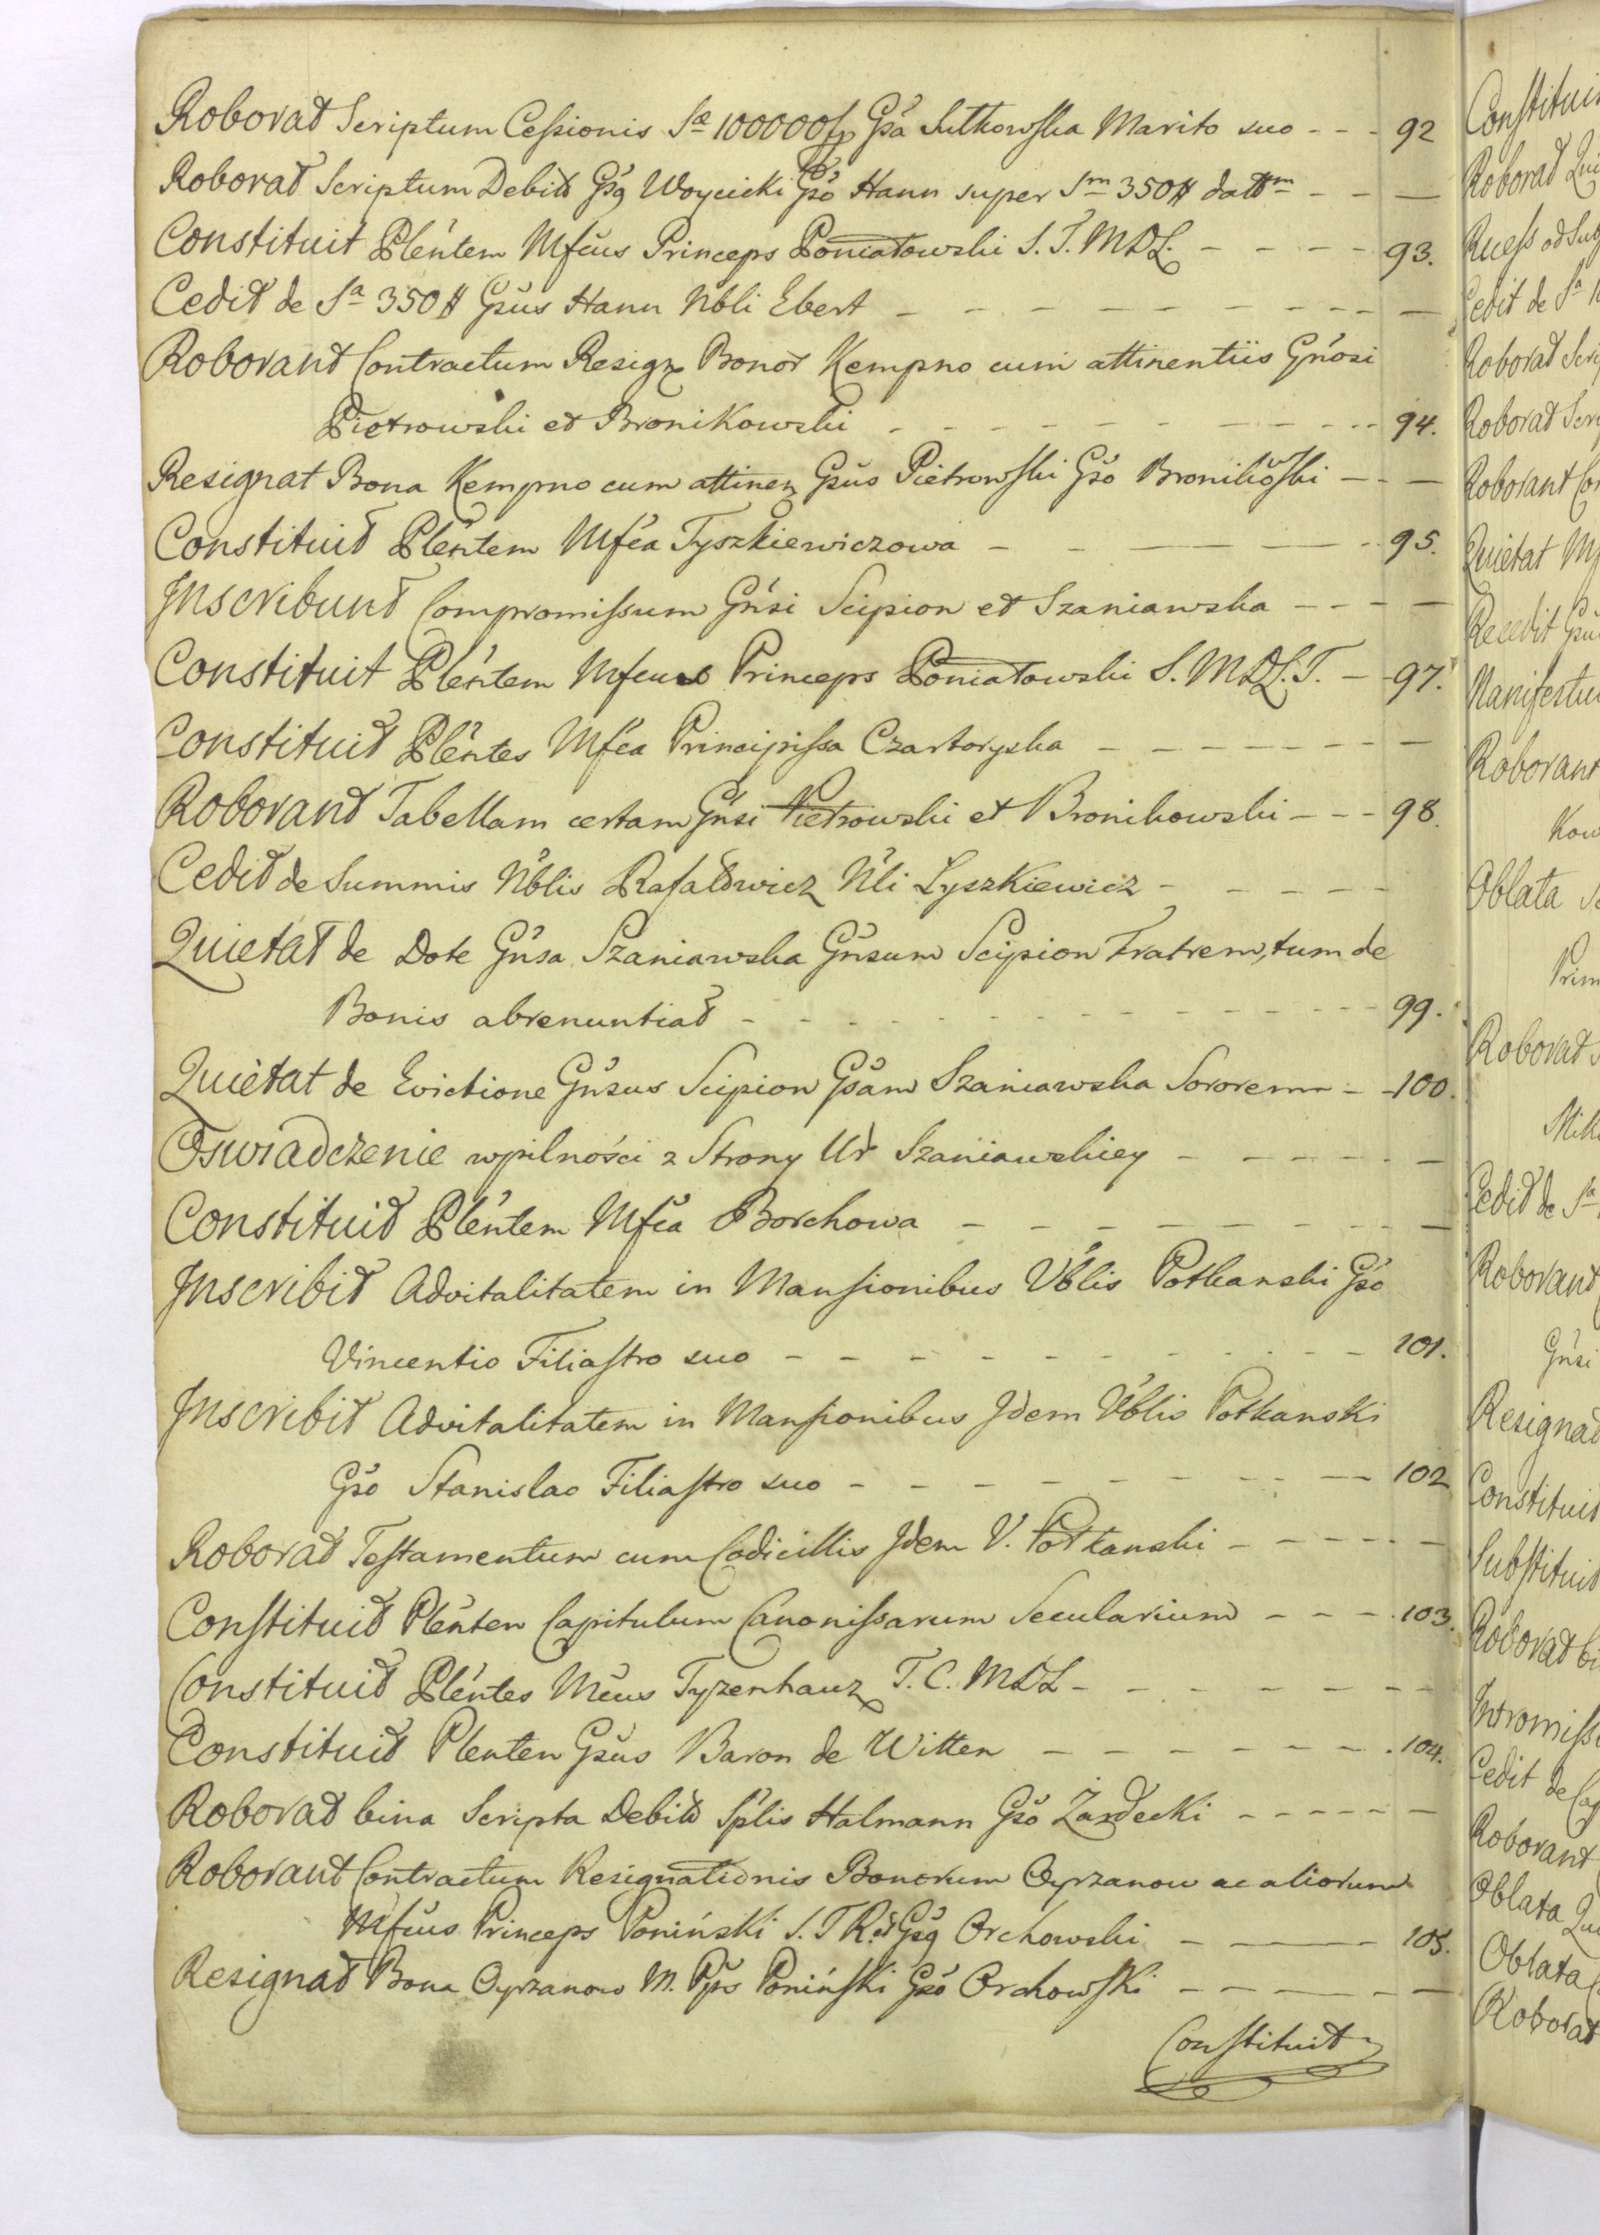 Roborat Scriptum Cessionis Sæ 100000 fp Gsa Sułkowska Marito suo - - - 92
Roborat Scriptum Debiti Gsq Woycicki Gso Hann super Sm 350 # dattm - - —
Constituit Plentem Mfcus Princeps Poniatowski S. T. MDL. - - - - 93.
Cedit de Sa 350 # Gsus Hann Nbli Ebert - - - - - - - - - —
Roborant Contractum Resignx Bonor Kempno cum attinentiis Gnosi
Pietrowski et Bronikowski - - - - - - - - - - - 94.
Resignat Bona Kempno cum attinen Gsus Pietrowski Gso Bronikoski - - —
Constituit Plentem Mfca Tyszkiewiczowa - - — — - 95.
Inscribunt Compromissum Gnsi Scipion et Szaniawska - - - —
Constituit Plentem Mfcus Princeps Poniatowski S. MDL. T. - - 97.
Constituit Plentes Mfca Principissa Czartoryska - - - - - - - —
Roborant Tabellam certam Gnsi Pietrowski et Bronikowski - - - 98.
Cedit de Summis Nblis Rafałowicz Nli Łyszkiewicz - - - - -
Quietat de Dote Gnsa Szaniawska Gnsum Scipion Fratrem, tum de
Bonis abrenuntiat - - - - - - - - - - - - - 99.
Quietat de Evictione Gnsus Scipion Gsam Szaniawska Sororem - - 100.
Oswiadczenie wpilności z Strony Ur Szaniawskiey - - - - - —
Constituit Plentem Mfca Borchowa - - - - - - - - —
Inscribit Advitalitatem in Mansionibus Vblis Potkanski Gso
Vincentio Filiastro suo - - - - - - - - - - - 101.
Inscribit Advitalitatem in Mansionibus Idem Vblis Potkanski
Gso Stanislao Filiastro suo - - - - - - - - - — 102
Roborat Testamentum cum Codicillis Idem V. Potkanski - - - - - —
Constituit Plenten Capitulum Canonissarum Secularium - - - - 103.
Constituit Plentes Mcus Tyzenhauz T. C. MDL - - - - - - - -
Constituit Plenten Gsus Baron de Witten - - - - - - - - 104.
Roborat bina Scripta Debiti Splis Halmann Gso Żardecki - - - - - —
Roborant Contractum Resignationis Bonorum Oyrzanow ac aliorum
Mfcus Princeps Poniński S. T R. et Gsq Orchowski - — 105.
Resignat Bona Oyrzanow M. Pps Poniński Gso Orchowski - - — - —
Constituit
Constituit
Roborat
Roborat
Roborat
Roborant
Quietat
Recedit
Roborant
Oblata
Roborat
Cedit de Sa
Roborant
Gnsi
Resignat
Constituit
Substituit
Cedit de
Roborant
Oblata
Oblata
Roborat